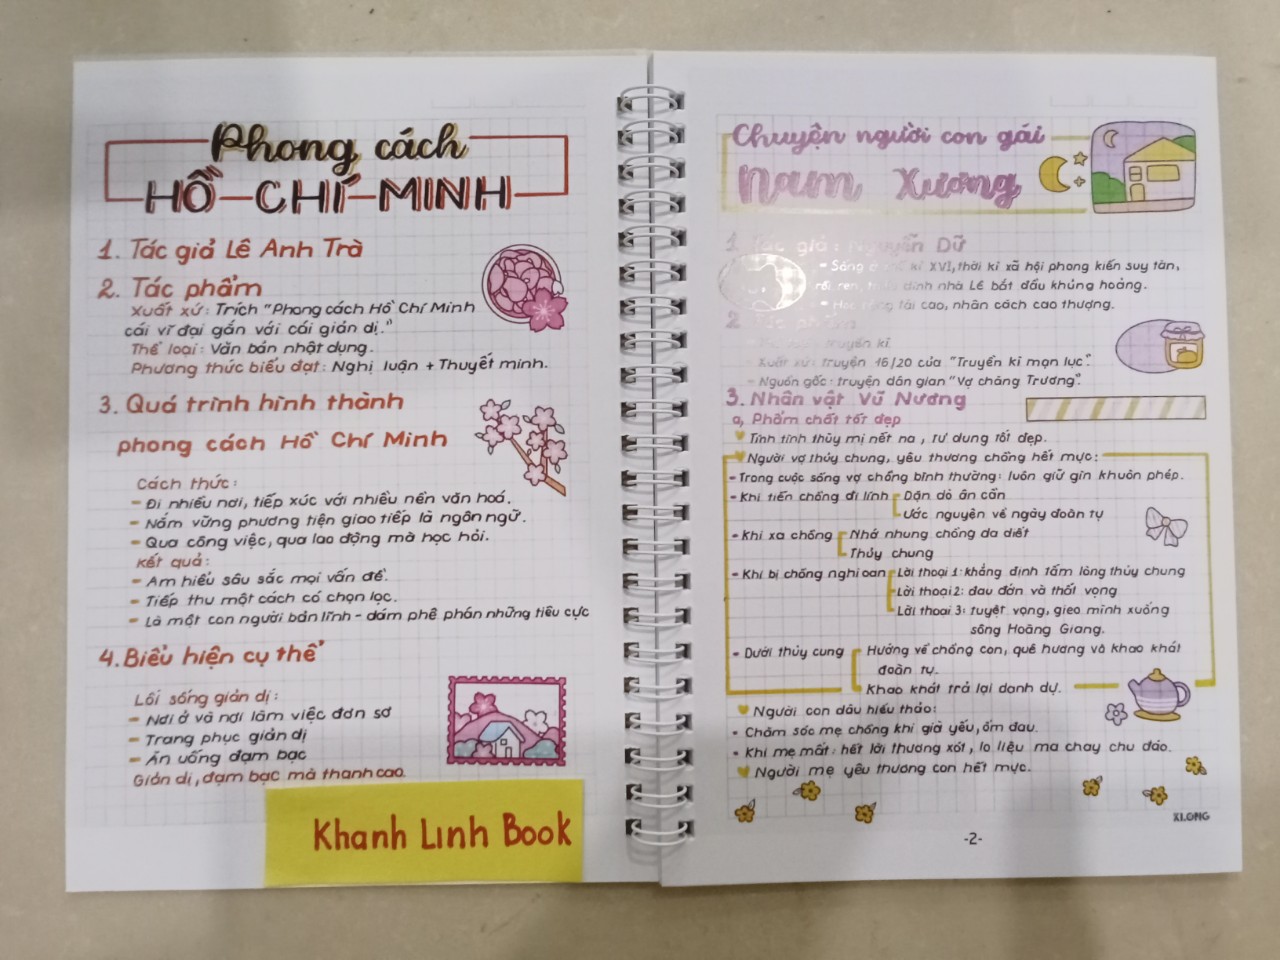 Phong cách
HỒ CHÍ MINH
1. Tác giả Lê Anh Trà
2. Tác phẩm
Xuất xứ: Trích "Phong cách Hồ Chí Minh
cái vĩ đại gắn với cái giản dị."
Thể loại: Văn bản nhật dụng.
Phương thức biểu đạt: Nghị luận + Thuyết minh.
3. Quá trình hình thành
phong cách Hồ Chí Minh
Cách thức:
- Đi nhiều nơi, tiếp xúc với nhiều nền văn hoá.
- Nắm vững phương tiện giao tiếp là ngôn ngữ.
- Qua công việc, qua lao động mà học hỏi.
Kết quả:
- Am hiểu sâu sắc mọi vấn đề.
- Tiếp thu một cách có chọn lọc.
- Là một con người bản lĩnh - dám phê phán những tiêu cực
4. Biểu hiện cụ thể
Lối sống giản dị:
- Nơi ở và nơi làm việc đơn sơ
- Trang phục giản dị
- Ăn uống đạm bạc
Giản dị, đạm bạc mà thanh cao.
Khanh Linh Book
Chuyện người con gái
Nam Xương
1. Tác giả: Nguyễn Dữ
- Sống ở kỉ XVI, thời kì xã hội phong kiến suy tàn,
rối ren, triều đình nhà Lê bắt đầu khủng hoảng.
- Học rộng tài cao, nhân cách cao thượng.
2. Tác phẩm
truyền kì.
- Xuất xứ: truyện 16/20 của "Truyền kì mạn lục".
- Nguồn gốc: truyện dân gian "Vợ chàng Trương".
3. Nhân vật Vũ Nương
a, Phẩm chất tốt đẹp
Tính tình thùy mị nết na, tư dung tốt đẹp.
Người vợ thủy chung, yêu thương chồng hết mực:
- Trong cuộc sống vợ chồng bình thường: luôn giữ gìn khuôn phép.
- Khi tiễn chồng đi lính Dặn dò ân cần
Ước nguyện về ngày đoàn tụ
- Khi xa chồng Nhớ nhung chồng da diết
Thủy chung
- Khi bị chồng nghi oan Lời thoại 1: khẳng định tấm lòng thủy chung
Lời thoại 2: đau đớn và thất vọng
Lời thoại 3: tuyệt vọng, gieo mình xuống
sông Hoàng Giang.
- Dưới thủy cung Hướng về chồng con, quê hương và khao khát
đoàn tụ.
Khao khát trả lại danh dự.
Người con dâu hiếu thảo:
- Chăm sóc mẹ chồng khi già yếu, ốm đau.
- Khi mẹ mất: hết lời thương xót, lo liệu ma chay chu đáo.
Người mẹ yêu thương con hết mực.
XI.ONG
-2-